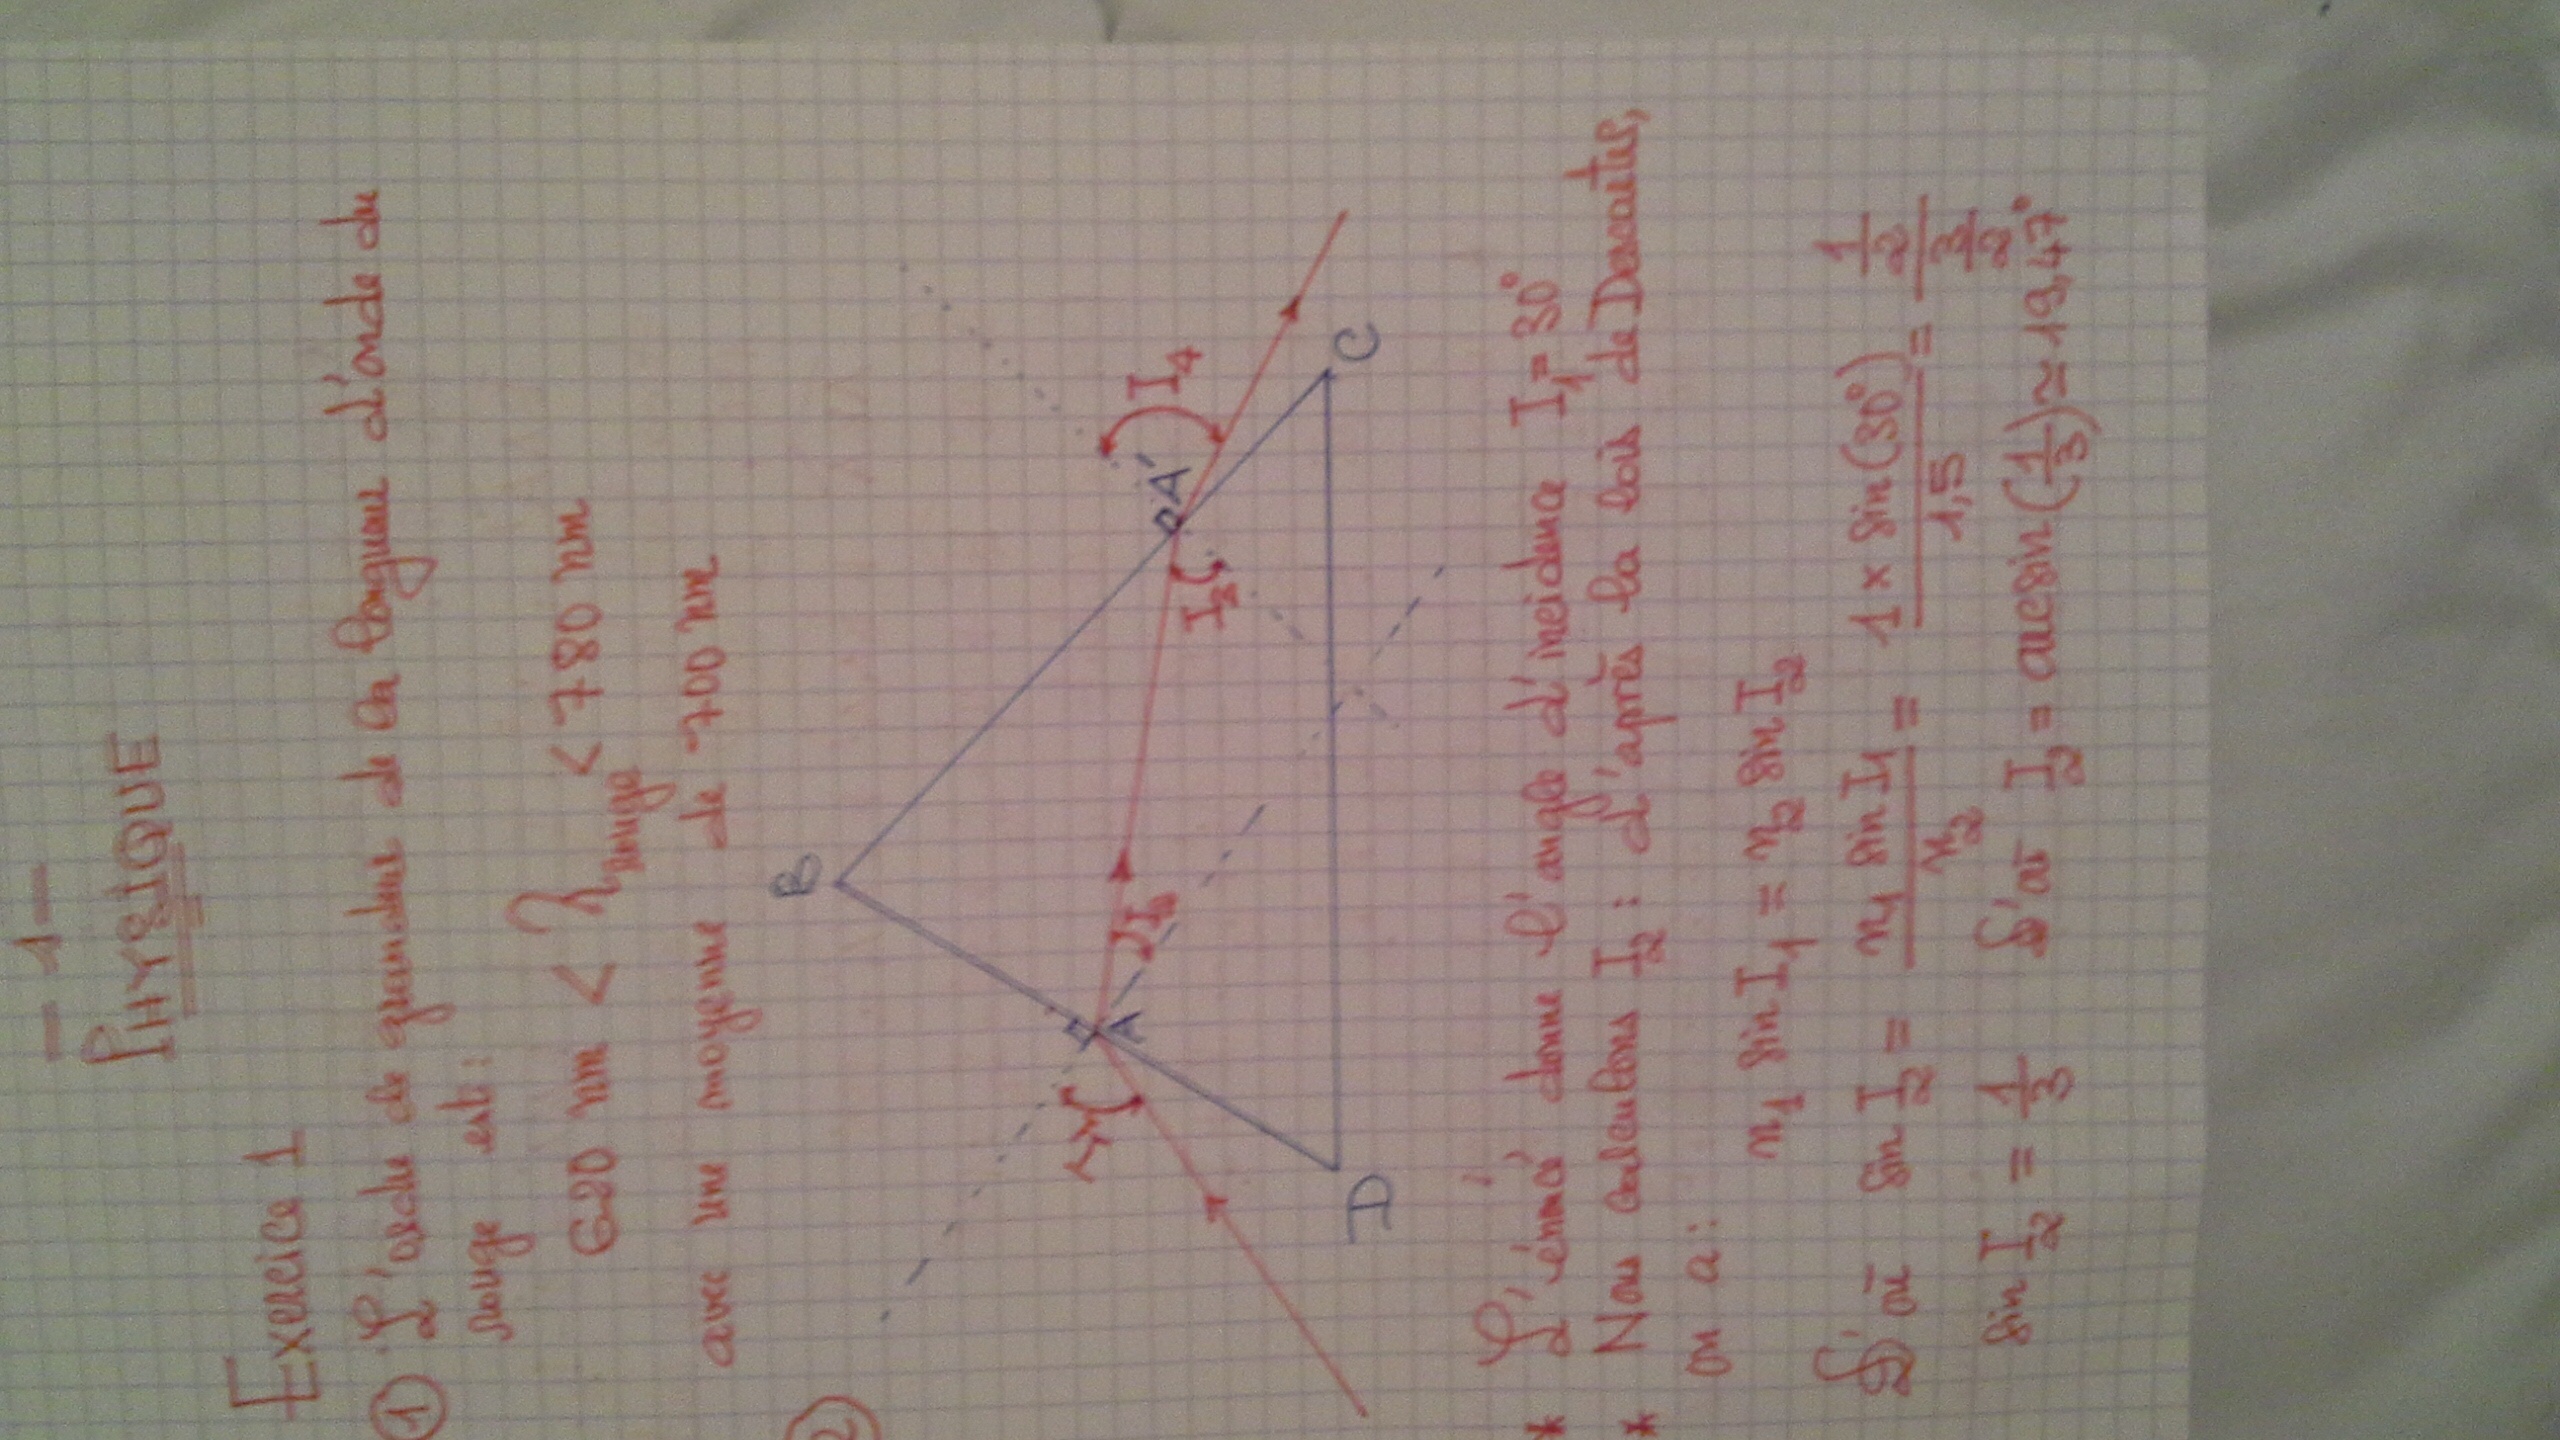 - 1 -
PHYSIQUE
Exercice 1
① L'ordre de grandeur de la longueur d'onde du
rouge est :
620 nm < λrouge < 780 nm
avec une moyenne de 700 nm
②
B
I1
A
I2
I3
A'
I4
D
C
* L'énncé donne l'angle d'incidence I1 = 30°
* Nous calculons I2 : d'après la lois de Descartes,
on a :
n1 sin I1 = n2 sin I2
D'où sin I2 = n1 sin I1 / n2 = 1 × sin(30°) / 1,5 = 1/2 / 3/2
sin I2 = 1/3 D'où I2 = arcsin(1/3) ≃ 19,47°